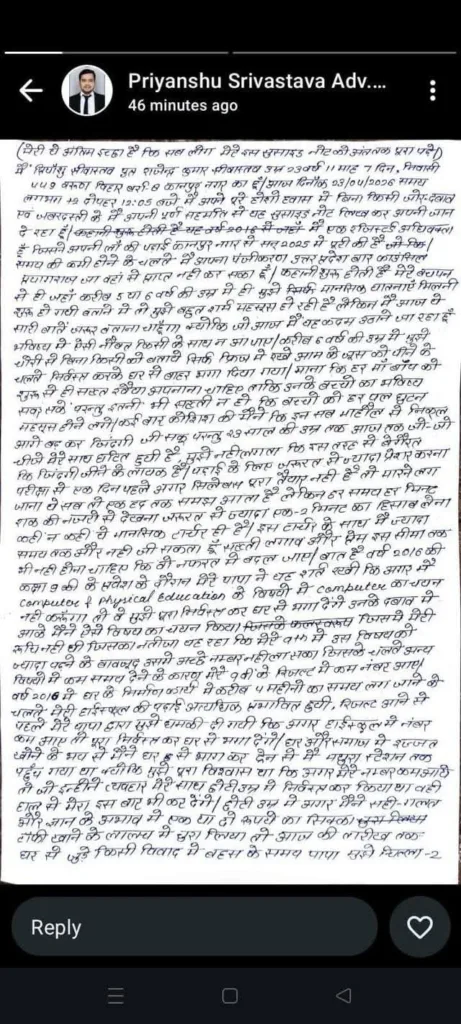 Priyanshu Srivastava Adv....
46 minutes ago
(मेरी ये अंतिम इच्छा है कि सब लोग मेरे इस सुसाइड नोट को अंत तक पूरा पढ़े)
मैं प्रियाँशु श्रीवास्तव पुत्र राजेन्द्र कुमार श्रीवास्तव उम्र 23 वर्ष 11 माह 7 दिन, निवासी
वरुण विहार बर्रा-8 कानपुर नगर का हूँ/ आज दिनाँक 23/04/2026 समय
लगभग दोपहर 12:05 बजे मैं अपने पूरे होशो हवास में बिना किसी जोर-दबाव
एवं जबरदस्ती के मैं अपनी पूर्ण सहमति से यह सुसाइड नोट लिखकर अपनी जान
दे रहा हूँ/ मैं एक रजिस्टर्ड अधिवक्ता
हूँ जिसने अपनी लॉ की पढ़ाई कानपुर नगर से सन् 2025 में पूरी की है
समय की कमी होने के चलते मैं अपना पंजीकरण उत्तर प्रदेश बार काउंसिल
प्रयागराज जा वहाँ से प्राप्त नहीं कर सका हूँ/ कहानी शुरू होती है मेरे बचपन
से ही जहाँ करीब 5 या 6 वर्ष की उम्र में ही मुझे मानसिक यातनाएँ मिलनी
शुरू हो गयी बताने में तो मुझे बहुत शर्म महसूस हो रही है लेकिन मैं आज ये
सारी बातें जरूर बताना चाहूँगा क्योंकि जो आज मैं यह कदम उठाने जा रहा हूँ
भविष्य में ऐसी नौबत किसी के साथ न आ जाए/ करीब 6 वर्ष की उम्र में मुझे
चोरी से बिना किसी को बताये सिर्फ फ्रिज में रखे आम के जूस को पीने के
चलते निर्वस्त्र करके घर से बाहर भगा दिया गया/ माना कि हर माँ बाप को
शुरू से ही सख्त रवैया अपनाना चाहिए ताकि उनके बच्चों का भविष्य
बन सके परन्तु इतनी भी सख्ती न हो कि बच्चों को हर पल घुटन
महसूस होने लगे/ कई बार कोशिश की मैंने कि इन सब माहौल से निकल
आगे बढ़ कर जिंदगी जी सकूँ परन्तु 23 साल की उम्र तक आज तक जो-जो
चीजें मेरे साथ घटित हुयी है मुझे नहीं लगता कि इस तरह से
कि जिंदगी जीने के लायक है/ पढ़ाई के लिए जरूरत से ज्यादा प्रेशर करना
परीक्षा से एक दिन पहले अगर सिलेबस पूरा तैयार नहीं है तो मारने लग
जाना ये सब तो एक हद तक समझ आता है लेकिन हर समय हर मिनट
शक की नजरों से देखना जरूरत से ज्यादा एक-2 मिनट का हिसाब लेना
कहीं न कहीं ये मानसिक टार्चर ही है/ इस टार्चर के साथ मैं ज्यादा
समय तक और नहीं जी सकता हूँ सख्ती लगाव और प्रेम इस सीमा तक
भी नहीं होना चाहिए कि वो नफरत में बदल जाए/ बात है वर्ष 2016 की
कक्षा 9 की के दौरान मेरे पापा ने यह शर्त रखी कि अगर मैं
computer & Physical Education के विषयों में computer का चयन
नहीं करूँगा तो वे मुझे पूरा निर्वस्त्र कर घर से भगा देंगे उनके दबाव में
आके मैंने ऐसे विषय का चयन किया जिसमें मेरी
रूचि नहीं थी जिसका नतीजा यह रहा कि मेरे 9th में उस विषय को
ज्यादा पढ़ने के बावजूद उसमें अच्छे नम्बर नहीं ला सका जिसके चलते अन्य
विषयों में कम समय देने के कारण मेरे 9वीं के रिजल्ट में कम नंबर आए/
वर्ष 2016 में घर के निर्माण कार्य में करीब 4 महीनों का समय लग जाने के
चलते मेरी हाईस्कूल की पढ़ाई अत्यधिक प्रभावित हुयी, रिजल्ट आने से
पहले मेरे पापा द्वारा मुझे धमकी दी गयी कि अगर हाईस्कूल में नंबर
कम आए तो पूरा निर्वस्त्र कर घर से भगा देंगे/ घर और समाज में इज्जत
खोने के भय से मैंने घर से भाग कर ट्रेन से मैं मथुरा स्टेशन तक
पहुँच गया था क्योंकि मुझे पूरा विश्वास था कि अगर मेरे नम्बर कम आये
तो जो इन्होंने व्यवहार मेरे साथ छोटी उम्र में निर्वस्त्र कर किया था वही
हाल ये मेरा इस बार भी कर देंगे/ छोटी उम्र में अगर मैंने सही-गलत
और ज्ञान के अभाव में एक या दो रूपयों का सिक्का
टॉफी खाने के लालच में चुरा लिया तो आज की तारीख तक
घर से जुड़े किसी विवाद में बहस के समय पापा मुझे चिल्ला-2
Reply